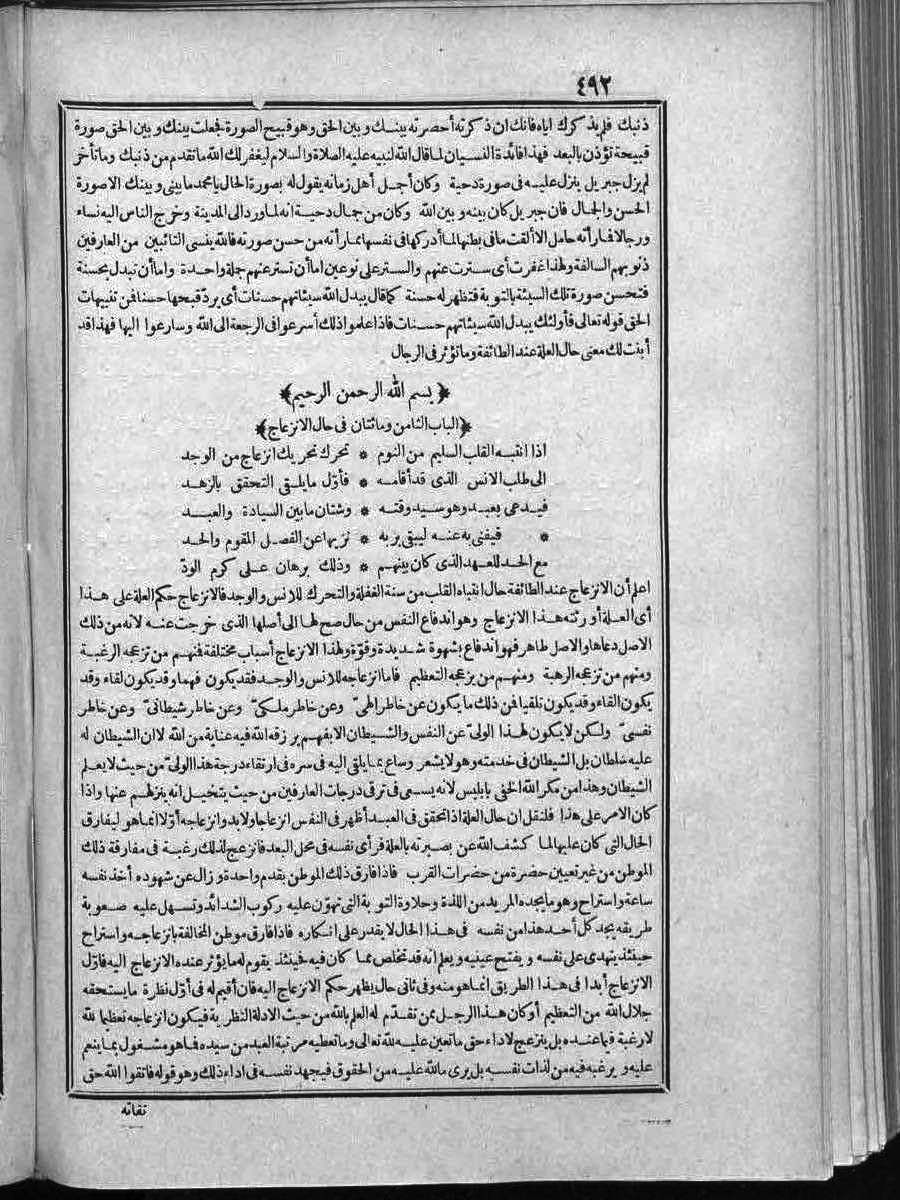 ٤٩٢
ذنبك فلم يذكرك اياه فانك ان ذكرته أحضرته بينك وبين الحق وهو قبيح الصورة فجعلت بينك وبين الحق صورة
قبيحة تؤذن بالبعد فهذا فائدة النسيان لما قال الله لنبيه عليه الصلاة والسلام ليغفر لك الله ما تقدم من ذنبك وما تأخر
لم يزل جبريل ينزل عليه فى صورة دحية وكان أجمل أهل زمانه يقول له بصورة الحال يا محمد ما بينى وبينك الا صورة
الحسن والجمال فان جبريل كان بينه وبين الله وكان من جمال دحية انه لما ورد الى المدينة وخرج الناس اليه نساء
ورجالا فما رأته حامل الا ألقت ما فى بطنها لما أدركها فى نفسها مما رأته من حسن صورته فالله ينسى التائبين من العارفين
ذنوبهم السالفة ولهذا غفرت أى سترت عنهم والستر على نوعين اما أن تستر عنهم جملة واحدة واما أن تبدل بحسنة
فتحسن صورة تلك السيئة بالتوبة فتظهر له حسنة كما قال يبدل الله سيئاتهم حسنات أى يردّ قبحها حسنا فن تنبيهات
الحق قوله تعالى فأولئك يبدل الله سيئاتهم حسنات فاذا علموا ذلك أسرعوا فى الرجعة الى الله وسارعوا اليها فهذا قد
أبنت لك معنى حال العلة عند الطائفة وما تؤثر فى الرجال
﴿بسم الله الرحمن الرحيم﴾
﴿الباب الثامن ومائتان فى حال الانزعاج﴾
اذا انتبه القلب السليم من النوم * تحرك تحريك انزعاج من الوجد
الى طلب الانس الذى قد أقامه * فأوّل ما يلقى التحقق بالزهد
فيدعى بعبد وهو سيد وقته * وشتان ما بين السيادة والعبد
* فيفنى به عنه ليبقى بربه * نزيها عن الفصل المقوم والحد
مع الحد للعهد الذى كان بينهم * وذلك برهان على كرم الودّ
اعلم أن الانزعاج عند الطائفة حال انتباه القلب من سنة الغفلة والتحرك للانس والوجد فالانزعاج حكم العلة على هذا
أى العلة أورثته هذا الانزعاج وهو اندفاع النفس من حال صح لها الى أصلها الذى خرجت عنه لانه من ذلك
الاصل دعاها والاصل طاهر فهو اندفاع بشهوة شديدة وقوّة ولهذا الانزعاج أسباب مختلفة فنهم من تزعجه الرغبة
ومنهم من تزعجه الرهبة ومنهم من يزعجه التعظيم فاما انزعاجه للانس والوجد فقد يكون فهما وقد يكون لقاء وقد
يكون القاء وقد يكون تلقيا فن ذلك ما يكون عن خاطر الهىّ وعن خاطر ملكىّ وعن خاطر شيطانىّ وعن خاطر
نفسىّ ولكن لا يكون لهذا الولىّ عن النفس والشيطان الا بفهم يرزقه الله فيه عناية من الله لا ان الشيطان له
عليه سلطان بل الشيطان فى خدمته وهو لا يشعر وساع بما يلقى اليه فى سره فى ارتقاء درجة هذا الولىّ من حيث لا يعلم
الشيطان وهذا من مكر الله الخفى بابليس لانه يسعى فى ترقى درجات العارفين من حيث يتخيل انه ينزلهم عنها واذا
كان الامر على هذا فلنقل ان حال العلة اذا تحقق فى العبد أظهر فى النفس انزعاجا ولا بد وانزعاجه أوّلا انما هو ليفارق
الحال التى كان عليها لما كشف الله عن بصيرته بالعلة فرأى نفسه فى محل البعد فانزعج لذلك رغبة فى مفارقة ذلك
الموطن من غير تعيين حضرة من حضرات القرب فاذا فارق ذلك الموطن بقدم واحدة وزال عن شهوده أخذ نفسه
ساعة واستراح وهو ما يجده المريد من اللذة وحلاوة التوبة التى تهوّن عليه ركوب الشدائد وتسهل عليه صعوبة
طريقه يجد كل أحد هذا من نفسه فى هذا الحال لا يقدر على انكاره فاذا فارق موطن المخالفة بانزعاجه واستراح
حينئذ ينهدى على نفسه ويفتح عينيه ويعلم انه قد تخلص مما كان فيه فينئذ يقوم له ما يؤثر عنده الانزعاج اليه فأوّل
الانزعاج أبدا فى هذا الطريق انما هو منه وفى ثانى حال يظهر حكم الانزعاج اليه فان أقيم له فى أوّل نظرة ما يستحقه
جلال الله من التعظيم أو كان هذا الرجل ممن تقدّم له العلم بالله من حيث الادلة النظرية فيكون انزعاجه تعظيما لله
لا رغبة فيما عنده بل ينزعج لاداء حق ما تعين عليه لله تعالى وما تعطيه مرتبة العبد من سيده فما هو مشغول بما ينعم
عليه ويرغبه فيه من لذات نفسه بل يرى ما لله عليه من الحقوق فيجهد نفسه فى اداء ذلك وهو قوله فاتقوا الله حق
تقاته